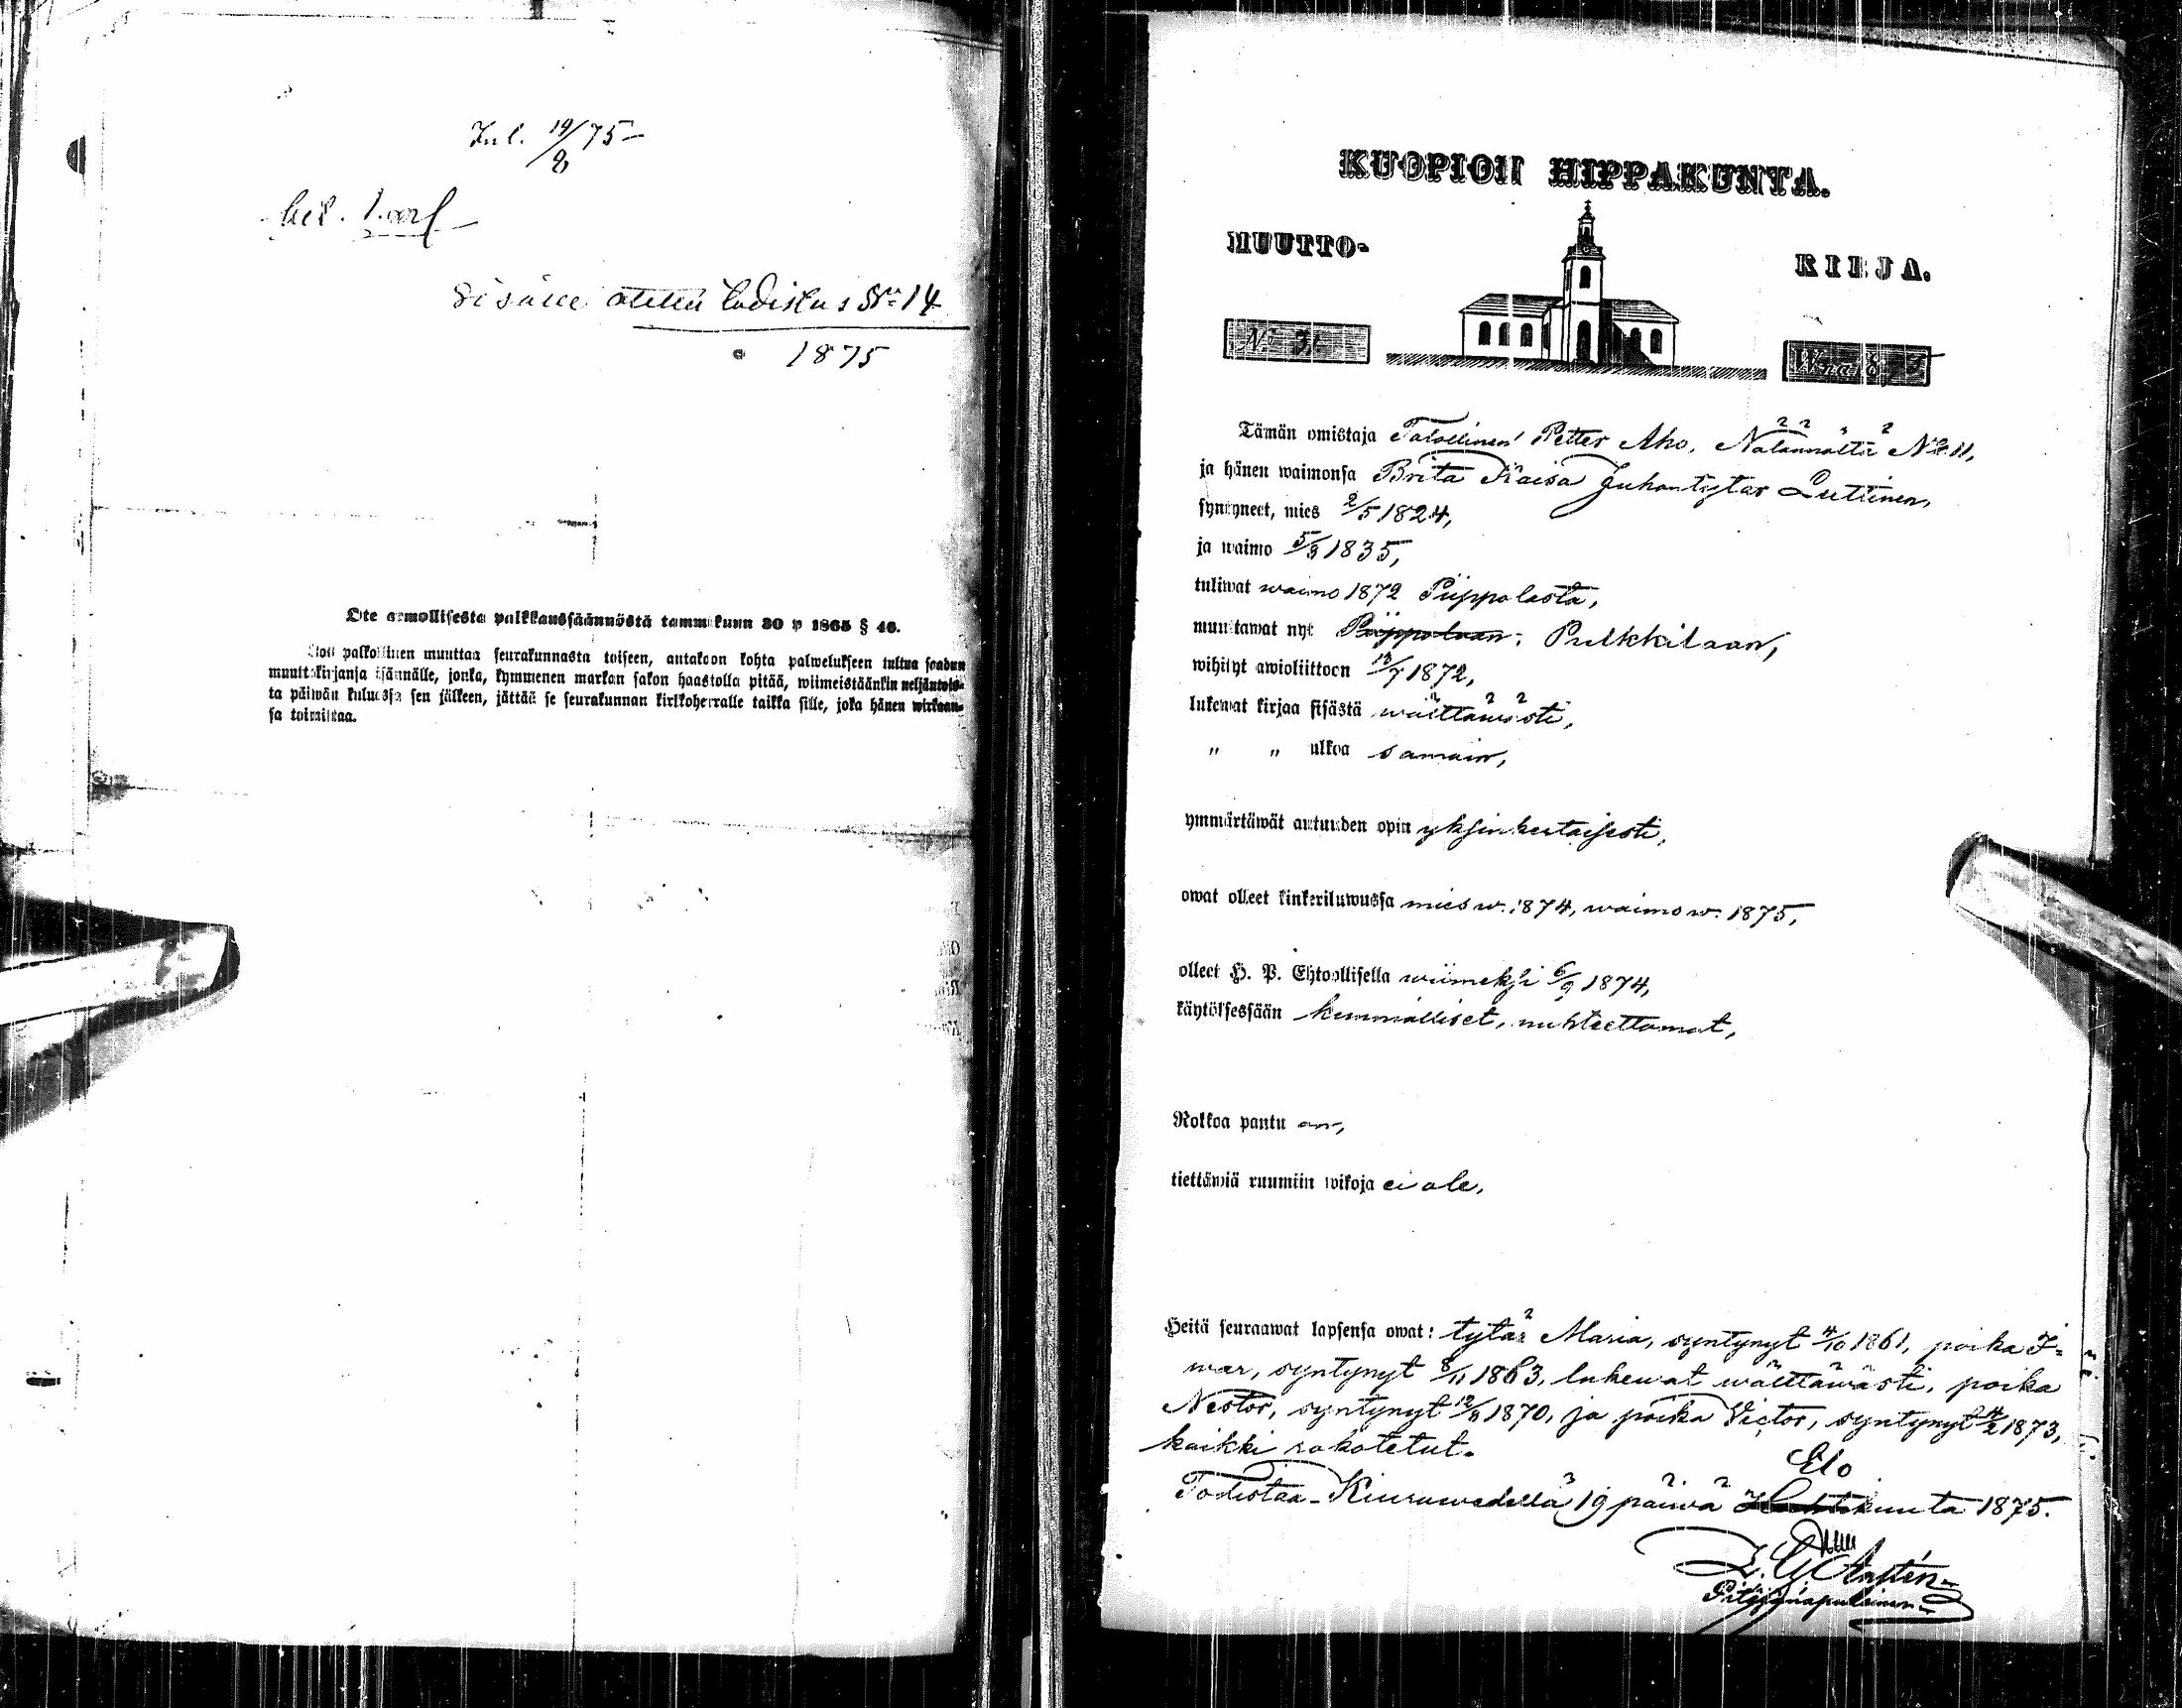 Inl. 19/8 75
Sisälle otettu todistus No 14
1875
Ote armollisesta palkkaussäännöstä tammikuun 30 p 1865 § 46.
palkollinen muuttaa seurakunnasta toiseen, antakoon kohta palwelukseen tultua saadun
muuttokirjansa isännälle, jonka, kymmenen markan sakon haastolla pitää, wiimeistäänkin neljäntois-
ta päiwän kuluessa sen jälkeen, jättää se seurakunnan kirkkoherralle taikka sille, joka hänen wirkaan-
sa toimittaa.
KUOPION HIPPAKUNTA.
MUUTTO-
KIRJA.
No 31
W:na 187
Tämän omistaja Talollinen Petter Aho, Nälämmältä No 11,
ja hänen waimonsa Brita Kaisa Juhontytär Luttinen,
syntyneet, mies 2/5 1824,
ja waimo 5/9 1835,
tuliwat waimo 1872 Piippolasta,
muuttawat nyt Piippolaan; Pulkkilaan,
wihityt awioliittoon 12/7 1872,
lukewat kirjaa sisästä wälttäwästi,
" " ulkoa samoin,
ymmärtäwät autuuden opin yksinkertaisesti,
owat olleet kinkeriluwussa mies w. 1874, waimo w. 1875,
olleet H. P. Ehtoollisella wiimeksi 6/9 1874,
käytöksessään kunnialliset, nuhteettomat,
Rokkoa pantu on,
tiettäwiä ruumiin wikoja ei ole,
Heitä seuraawat lapsensa owat: tytär Maria, syntynyt 4/10 1861, poika I-
war, syntynyt 8/11 1863, lukewat wälttäwästi, poika
Nestor, syntynyt 12/11 1870, ja poika Victor, syntynyt 4/2 1873,
kaikki rokotetut.
Elo
Todistaa Kiuruwedellä 19 päiwä kuuta 1875.
Pitäjänapulainen